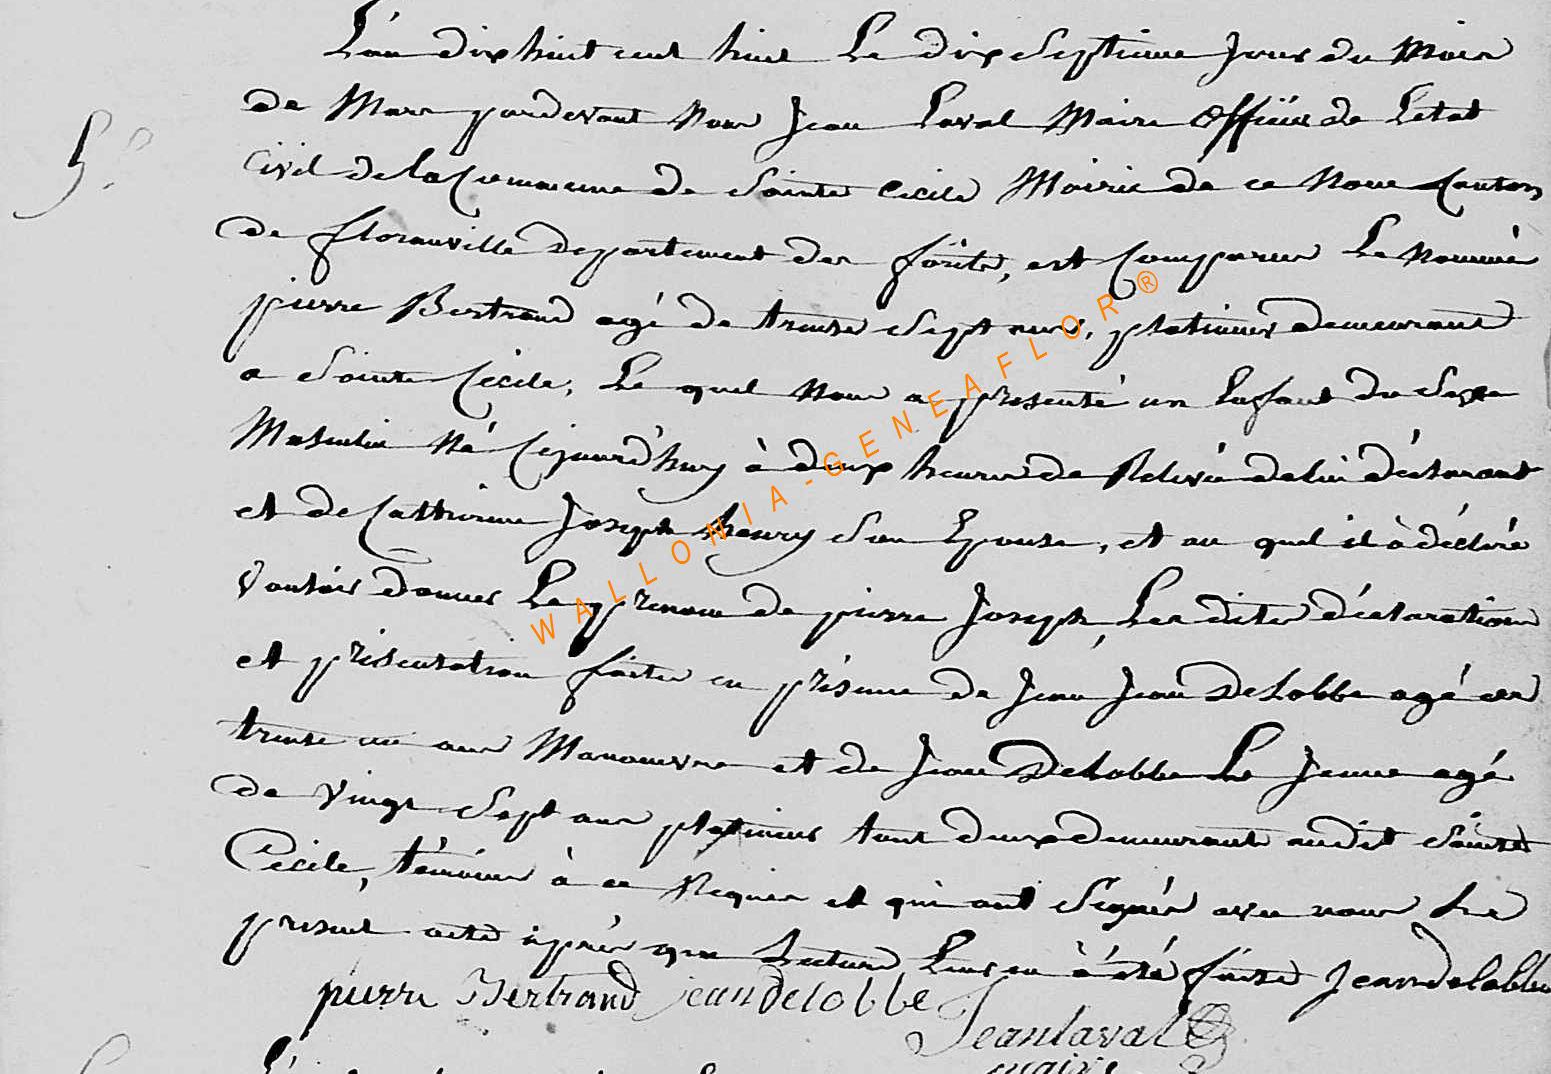 L'an dix huit cent huit Le dix Septieme Jour du Mois
de Mars pardevant Nous Jean Laval Maire Officier de L'Etat
Civil de la Commune de Sainte Cecile Mairie de ce Nom Canton
5º.
de florenville departement des forêts, est Comparus Le Nommé
pierre Bertrand agé de trente Sept ans, platineur demeurant
a Sainte Cecile, Le quel Nous a presenté un Enfant du Sexe
Masculin Né Cejourd'huy à deux heures de Relevée de lui déclarant
et de Catherine Joseph henry Son Epouse, et au quel il à déclaré
Vouloir donner Le prenom de pierre Joseph, Les dites déclaration
et présentation faites en présence de Jean Jean Delobbe agé de
trente un ans Manoeuvre et de Jean Delobbe Le Jeune agé
de Vingt Sept ans platineur tout deux demeurant audit Sainte
Cecile, témoins à ce Requis et qui ont Signés avec nous Le
présent acte après que Lecture Leur en à été faite Jean delobbe
pierre Bertrand jean Delobbe
Jean laval
maire
WALLONIA-GENEAFLOR®